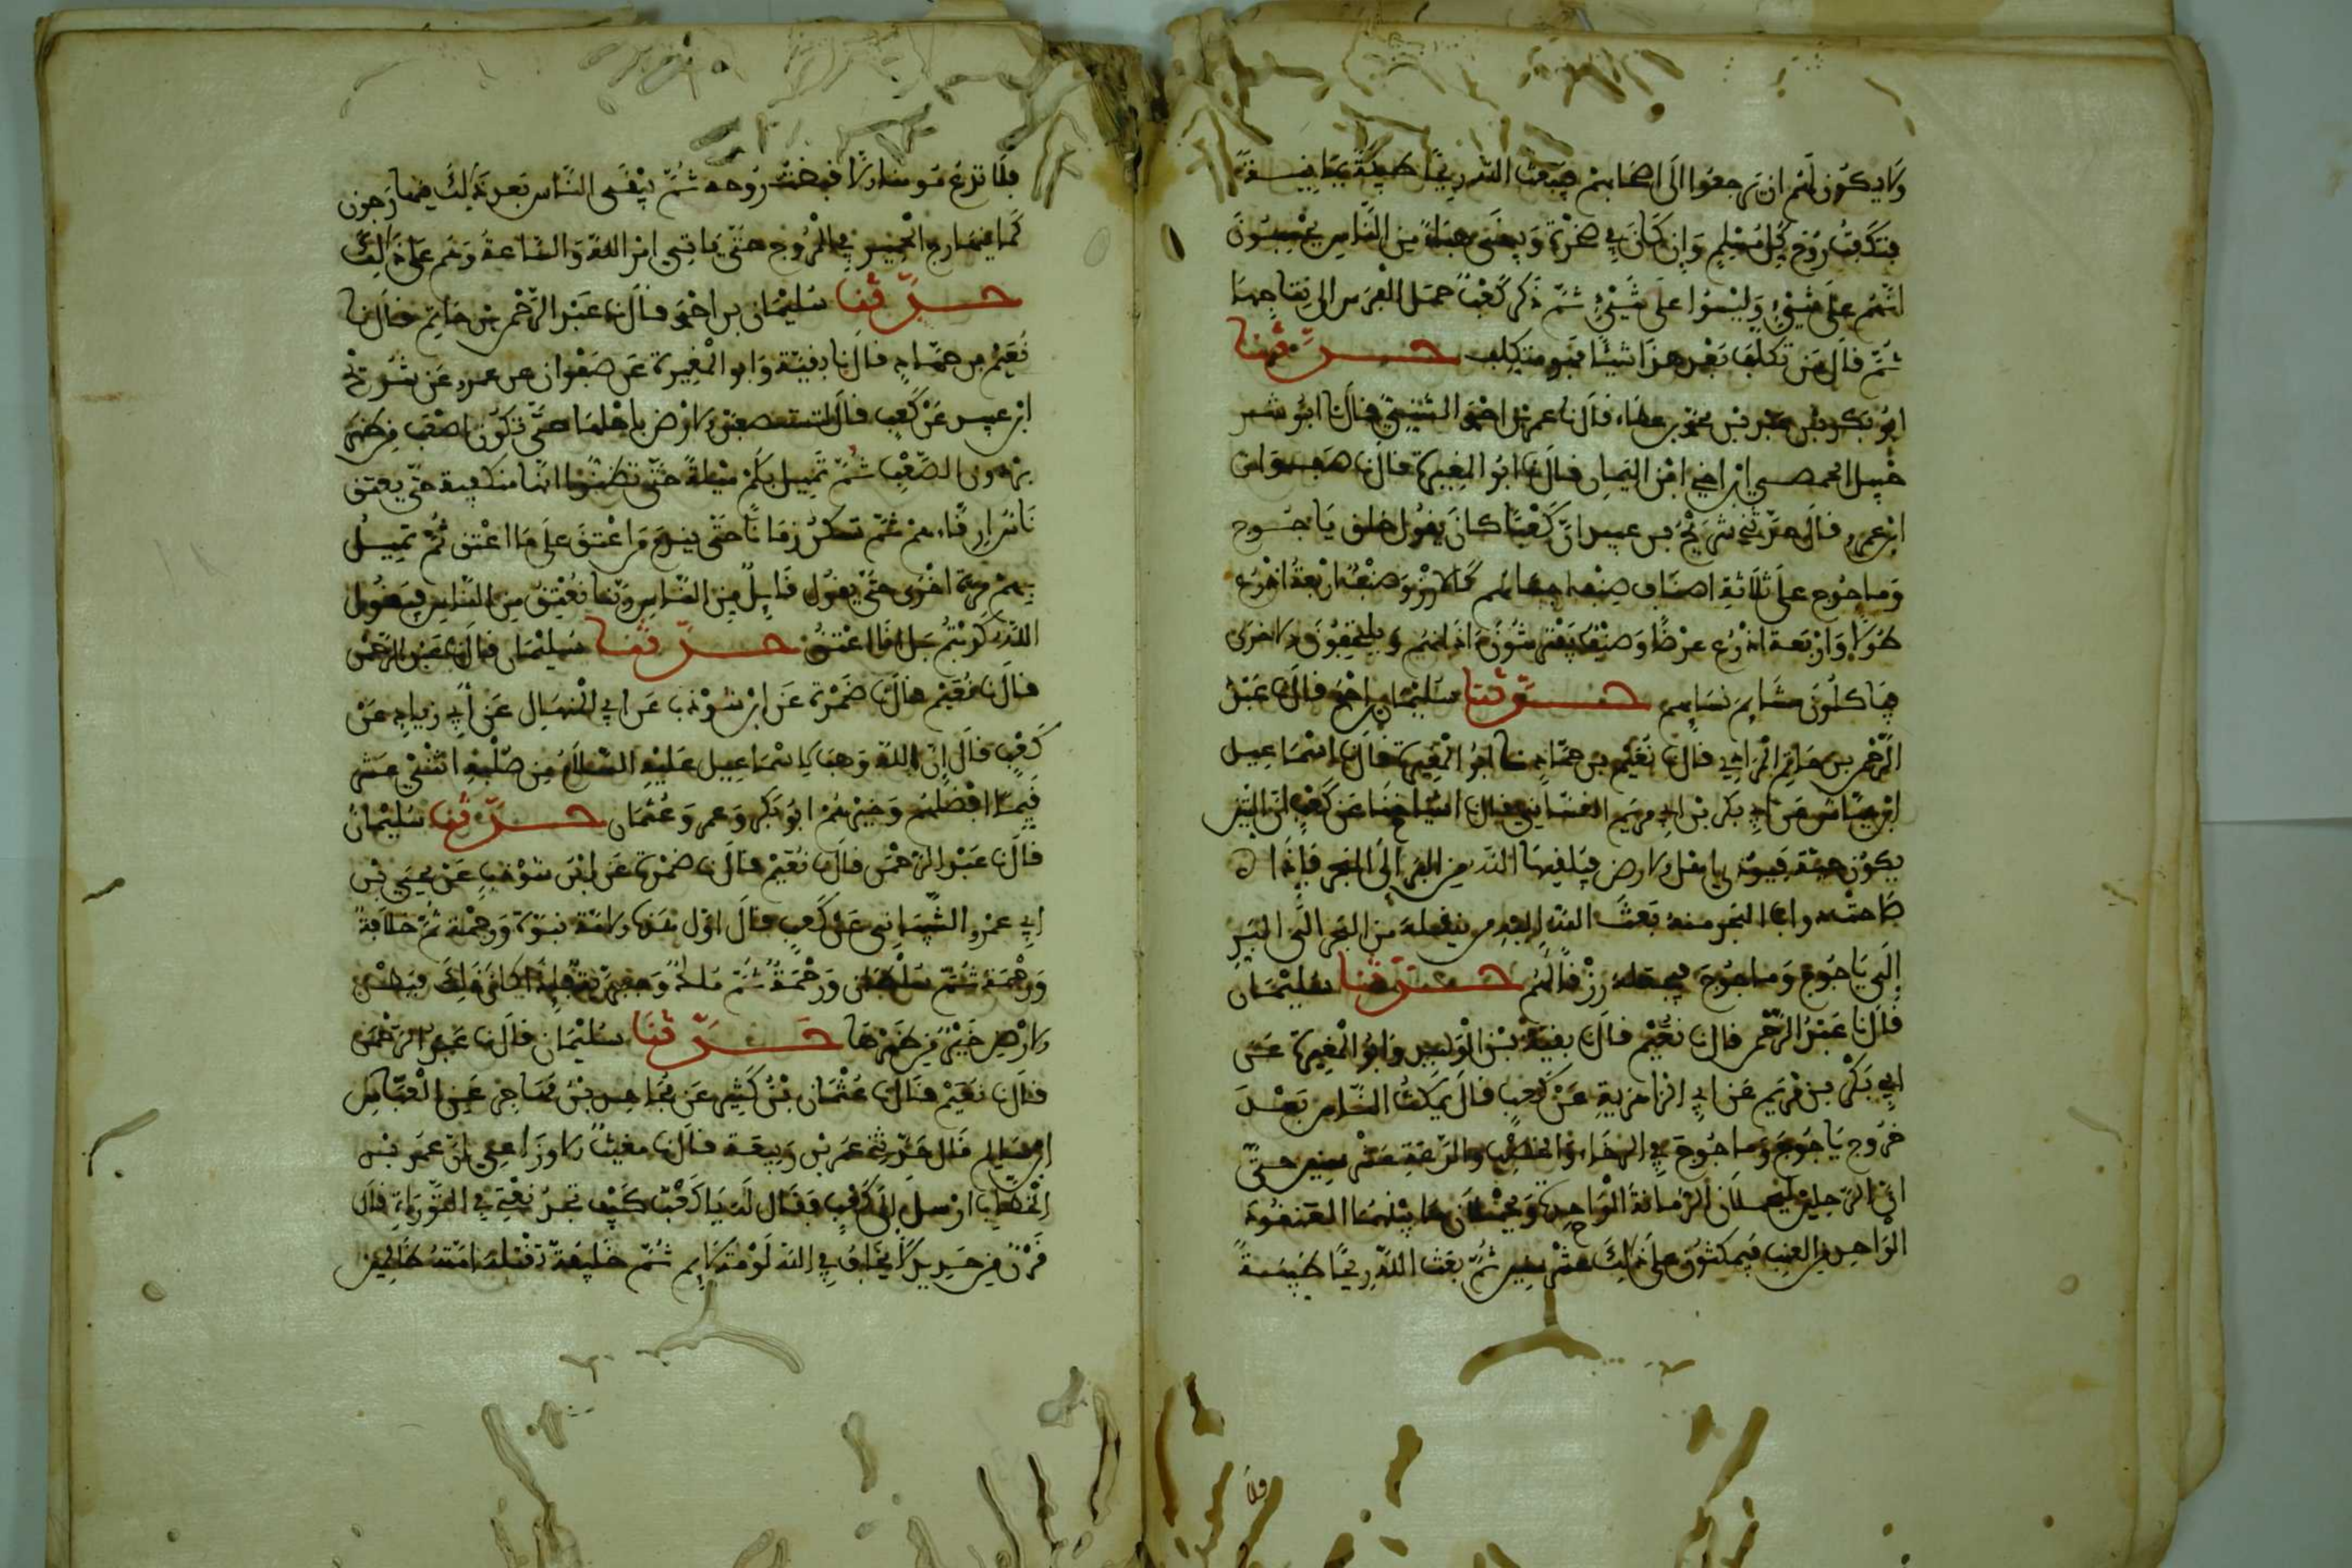 ولا يكون لهم ان يرجعوا الى اصحابهم فيبعث الله ريحا طيبة يمانية
فتكفت روح كل مسلم وان كان في صخرة ويبقى هباء من الناس يحسبون
انهم على شيء وليسوا على شيء ثم ذكر كعب حمل الفرس الى نتاجها
ثم قال من تكلف بعد هذا شيئا فهو متكلف حدثنا
ابو بكر بن محمد بن عطاء قال نا عمر بن احمد قال نا ابو شبر
الحمصي ابن اخي ابن اليمان قال نا ابو المغيرة قال نا صفوان
ابن عمرو قال حدثني شريح بن عبيد ان كعبا كان يقول خلق ياجوج
وماجوج على ثلاثة اصناف صنف اجسامهم كالارز وصنف اربعة اذرع
طولا واربعة اذرع عرضا وصنف يفترشون اذانهم ويلتحفون الاخرى
فياكلون مشايم نسايهم حدثنا سليمان بن احمد قال نا عبد
الرحمن بن حاتم المرادي قال نا نعيم بن حماد نا ابو المغيرة قال نا اسماعيل
ابن عياش عن ابي بكر بن ابي مريم الغساني قال نا اشياخنا عن كعب ان التنين
يكون حية فيوذي اهل الارض فيلقيها الله من البر الى البحر فاذا
صاحت دواب البحر منه بعث الله اليه من ينقله من البحر الى البر
الى ياجوج وماجوج فيجعله رزقا لهم حدثنا سليمان
قال نا عبد الرحمن قال نا نعيم قال نا بقية بن الوليد وابو المغيرة عن
ابي بكر بن مريم عن ابي الزاهرية عن كعب قال يمكث الناس بعد
خروج ياجوج وماجوج في الرخاء والخصب والدعة عشر سنين حتى
ان الرجلين ليحملان الرمانة الواحدة ويحملان ما بينهما العنقود
الواحد من العنب فيمكثون على ذلك عشر سنين ثم بعث الله ريحا طيبة
فلا
فلا تدع مومنا الا قبضت روحه ثم يبقى الناس بعد ذلك يتهارجون
كما يتهارج الحمير في المروج حتى ياتي امر الله والساعة وهم على ذلك
حدثنا سليمان بن احمد قال نا عبد الرحمن بن حاتم قال نا
نعيم بن حماد قال نا بقية وابو المغيرة عن صفوان عن عمرو عن شريح
ابن عبيد عن كعب قال لتستصعبن الارض باهلها حتى تكون اصعب من ظهر
برذون الصعب ثم تميل بكم ميلة حتى تظنوا انها منكفية حتى يعتق
ناس ارقاءهم ثم تسكن زمانا حتى يندم من اعتق على ما اعتق ثم تميل
بهم مرة اخرى حتى يقول قايل من الناس ربنا نعتق من الناس فيقول
الله كذبتم بل انا اعتق حدثنا سليمان قال نا عبد الرحمن
قال نا نعيم قال نا ضمرة عن ابن شوذب عن ابي المنهال عن ابي زياد عن
كعب قال ان الله وهب لاسماعيل عليه السلام من صلبه اثني عشر
قيما افضلهم وخيرهم ابو بكر وعمر وعثمان حدثنا سليمان
قال نا عبد الرحمن قال نا نعيم قال نا ضمرة عن ابن شوذب عن يحيى بن
ابي عمرو الشيباني عن كعب قال اول هذه الامة نبوة ورحمة ثم خلافة
ورحمة ثم سلطان ورحمة ثم ملك وجبرية فاذا كان ذلك فبطن
الارض خير من ظهرها حدثنا سليمان قال نا عبد الرحمن
قال نا نعيم قال نا عثمان بن كثير عن محمد بن مهاجر عن العباس
ابن سالم قال حدثني عمر بن ربيعة قال نا مغيث الاوزاعي ان عمر بن
الخطاب ارسل الى كعب فقال له يا كعب كيف تجد نعتي في التوراة قال
قرن من حديد لا يخاف في الله لومة لايم ثم خليفة تقتله امته ظالمين